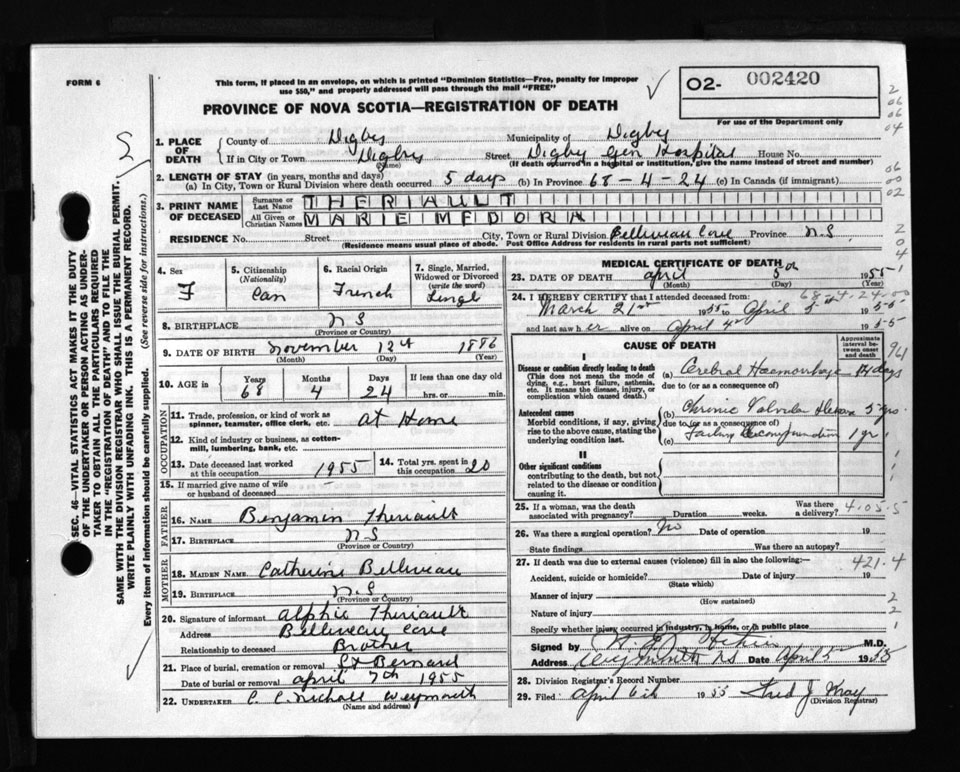 FORM 6
This form, if placed in an envelope, on which is printed "Dominion Statistics—Free, penalty for improper
use $50," and properly addressed will pass through the mail "FREE"
O2- 002420
For use of the Department only
PROVINCE OF NOVA SCOTIA—REGISTRATION OF DEATH
1. PLACE OF DEATH
County of Digby Municipality of Digby
If in City or Town Digby (Name) Street Digby Gen Hospital House No.
(If death occurred in a hospital or institution, give the name instead of street and number)
2. LENGTH OF STAY (in years, months and days)
(a) In City, Town or Rural Division where death occurred 5 days (b) In Province 68-4-24 (c) In Canada (if immigrant)
3. PRINT NAME OF DECEASED
Surname or Last Name THERIAULT
All Given or Christian Names MARIE MEDORA
RESIDENCE No. Street City, Town or Rural Division Belliveau Cove Province N.S.
(Residence means usual place of abode. Post Office Address for residents in rural parts not sufficient)
4. Sex F
5. Citizenship (Nationality) Can
6. Racial Origin French
7. Single, Married, Widowed or Divorced (write the word) Singl
8. BIRTHPLACE N S
(Province or Country)
9. DATE OF BIRTH November 12th 1886
(Month) (Day) (Year)
10. AGE in Years 68 Months 4 Days 24 If less than one day old hrs. or min.
OCCUPATION
11. Trade, profession, or kind of work as spinner, teamster, office clerk, etc. at Home
12. Kind of industry or business, as cotton-mill, lumbering, bank, etc.
13. Date deceased last worked at this occupation 1955
14. Total yrs. spent in this occupation 20
15. If married give name of wife or husband of deceased
FATHER
16. NAME Benjamin Theriault
17. BIRTHPLACE N S
(Province or Country)
MOTHER
18. MAIDEN NAME Catherine Belliveau
19. BIRTHPLACE N.S
(Province or Country)
20. Signature of informant Alphie Theriault
Address Belliveau Cove
Relationship to deceased Brother
21. Place of burial, cremation or removal St Bernard
Date of burial or removal april 7th 1955
22. UNDERTAKER C. C. Nichols Weymouth
(Name and address)
MEDICAL CERTIFICATE OF DEATH
23. DATE OF DEATH April 5th 1955
(Month) (Day)
68-4-24-00
24. I HEREBY CERTIFY that I attended deceased from:
March 21st 1955 to April 5th 1955
and last saw her alive on April 4th 1955
CAUSE OF DEATH
Approximate interval between onset and death
I
Disease or condition directly leading to death
(This does not mean the mode of dying, e.g., heart failure, asthenia, etc. It means the disease, injury, or complication which caused death.)
(a) Cerebral Haemorrhage 14 days
due to (or as a consequence of)
Antecedent causes
Morbid conditions, if any, giving rise to the above cause, stating the underlying condition last.
(b) Chronic Valvular Disease 5 yrs.
due to (or as a consequence of)
(c) Failing Decompensation 1 yr
II
Other significant conditions
contributing to the death, but not related to the disease or condition causing it.
25. If a woman, was the death associated with pregnancy? Duration weeks. Was there a delivery? 4.05.5
26. Was there a surgical operation? No Date of operation 19
State findings Was there an autopsy?
27. If death was due to external causes (violence) fill in also the following:— 421.4
Accident, suicide or homicide? Date of injury 19
(State which)
Manner of injury
(How sustained)
Nature of injury
Specify whether injury occurred in industry, in home, or in public place
Signed by M.D.
Address Weymouth NS Date April 5 1955
28. Division Registrar's Record Number
29. Filed April 6th 1955 Fred J. Wray
(Division Registrar)
SEC. 46—VITAL STATISTICS ACT MAKES IT THE DUTY
OF THE UNDERTAKER OR PERSON ACTING AS UNDER-
TAKER TO OBTAIN ALL THE PARTICULARS REQUIRED
IN THE "REGISTRATION OF DEATH" AND TO FILE THE
SAME WITH THE DIVISION REGISTRAR WHO SHALL ISSUE THE BURIAL PERMIT.
WRITE PLAINLY WITH UNFADING INK. THIS IS A PERMANENT RECORD.
Every item of information should be carefully supplied. (See reverse side for instructions.)
2
06
06
04
06
00
02
2
0
4
1
961
2
2
1